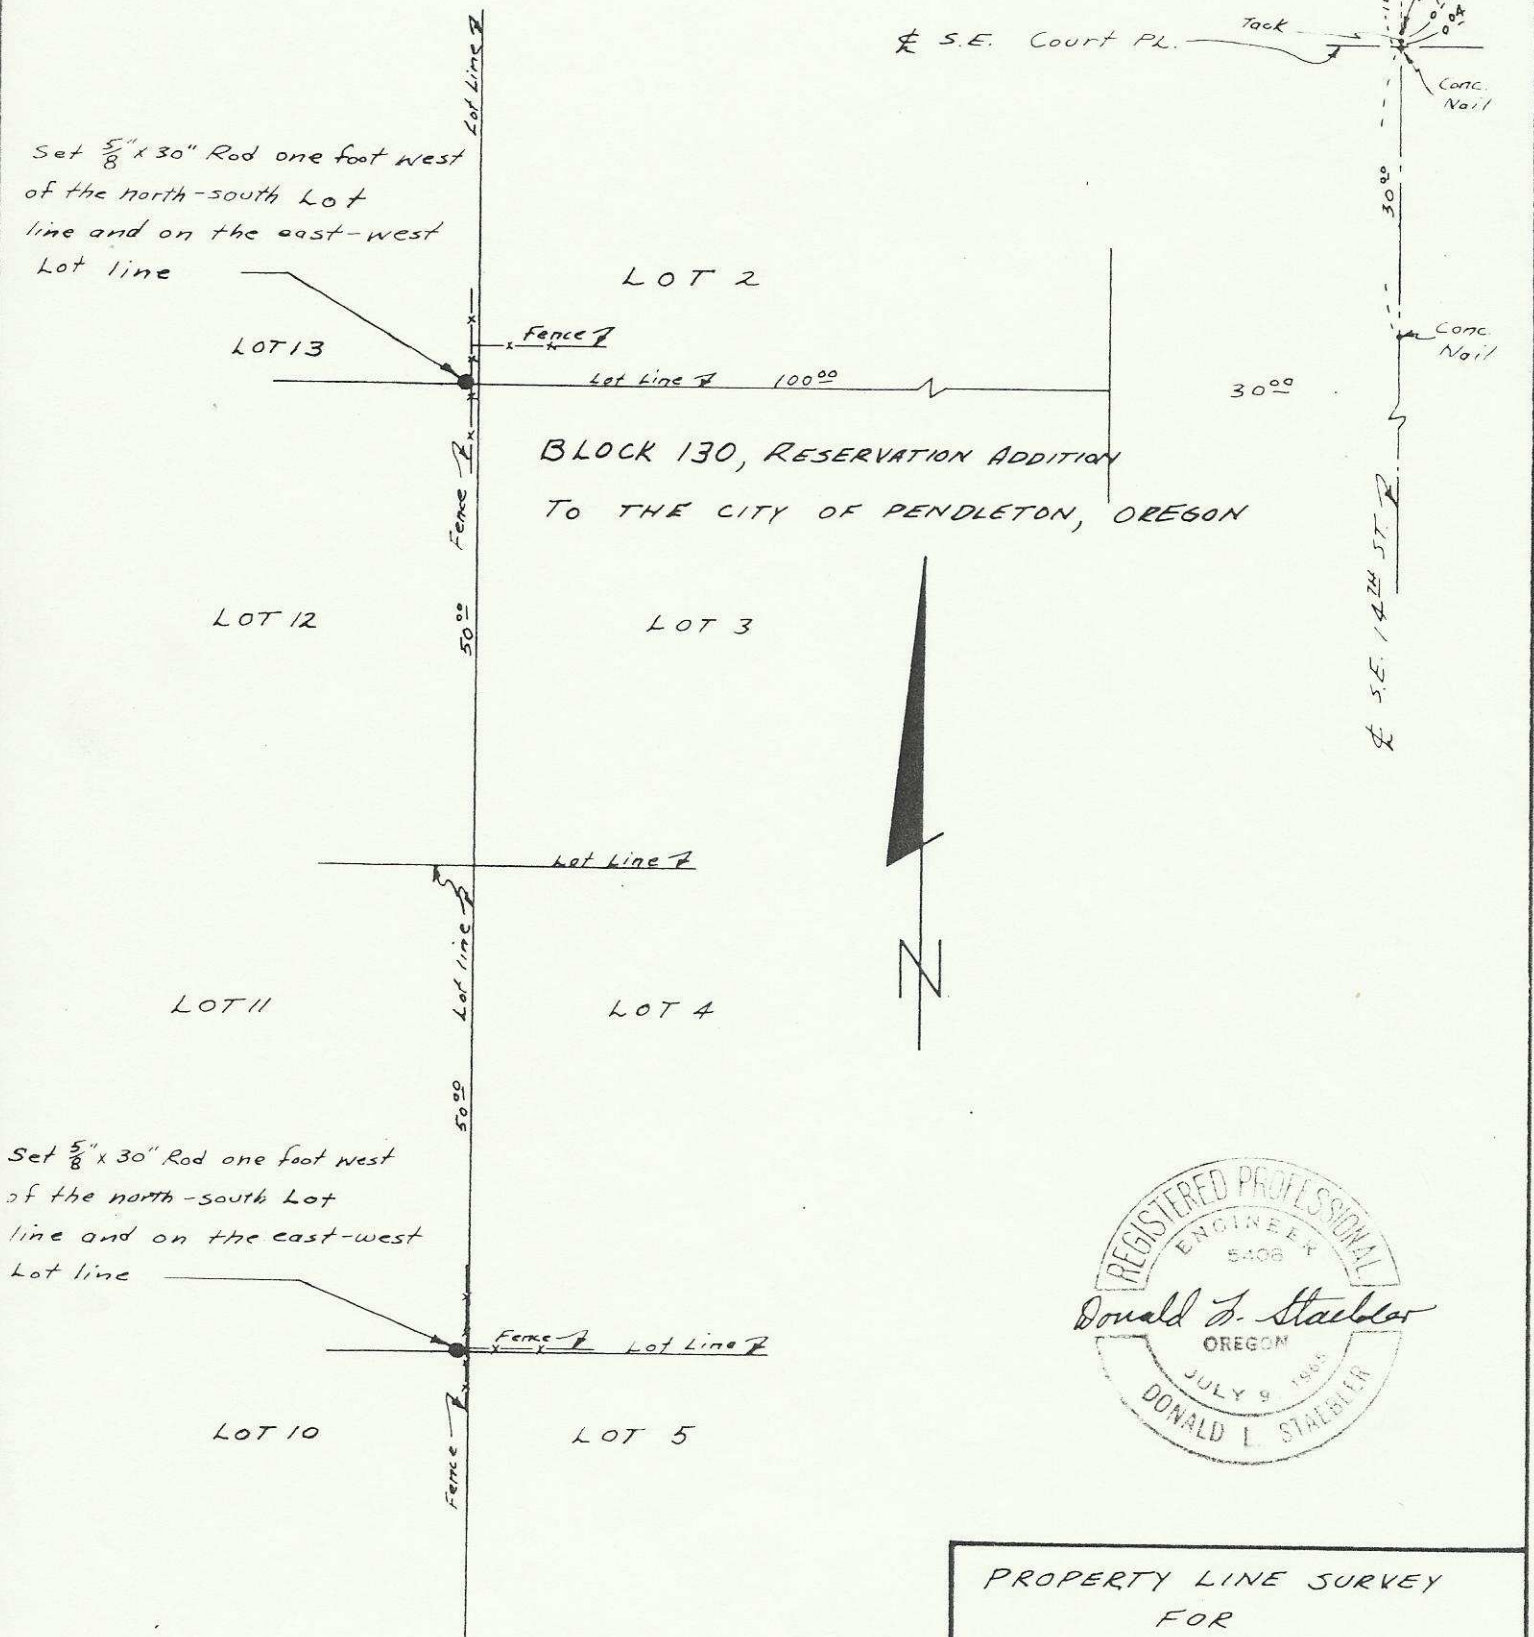 Lot Line
℄ S.E. Court PL.
Tack
Conc.
Nail
Set 5/8" x 30" Rod one foot west
of the north-south Lot
line and on the east-west
Lot line
30 00
LOT 2
Fence
Conc.
Nail
LOT 13
Lot Line 100 00
30 00
BLOCK 130, RESERVATION ADDITION
TO THE CITY OF PENDLETON, OREGON
Fence
℄ S.E. 14TH ST.
LOT 12
50 00
LOT 3
Lot Line
Lot line
N
LOT 11
LOT 4
50 00
Set 5/8" x 30" Rod one foot west
of the north-south Lot
line and on the east-west
Lot line
REGISTERED PROFESSIONAL
ENGINEER
5406
Donald L. Staebler
OREGON
JULY 9, 1965
DONALD L. STAEBLER
Fence
Lot Line
Fence
LOT 10
LOT 5
PROPERTY LINE SURVEY
FOR